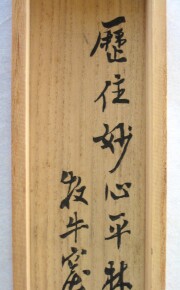 歴住妙心平林
牧牛窓